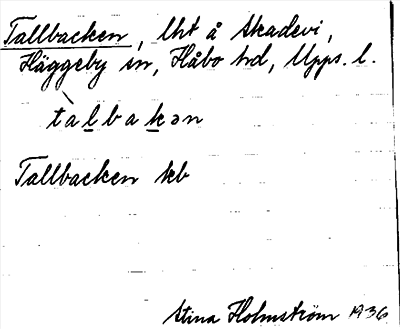 Tallbacken, lht å Skadevi,
Häggeby sn, Håbo hd, Upps. l.
tàlbakən
Tallbacken kb
Stina Holmström 1936